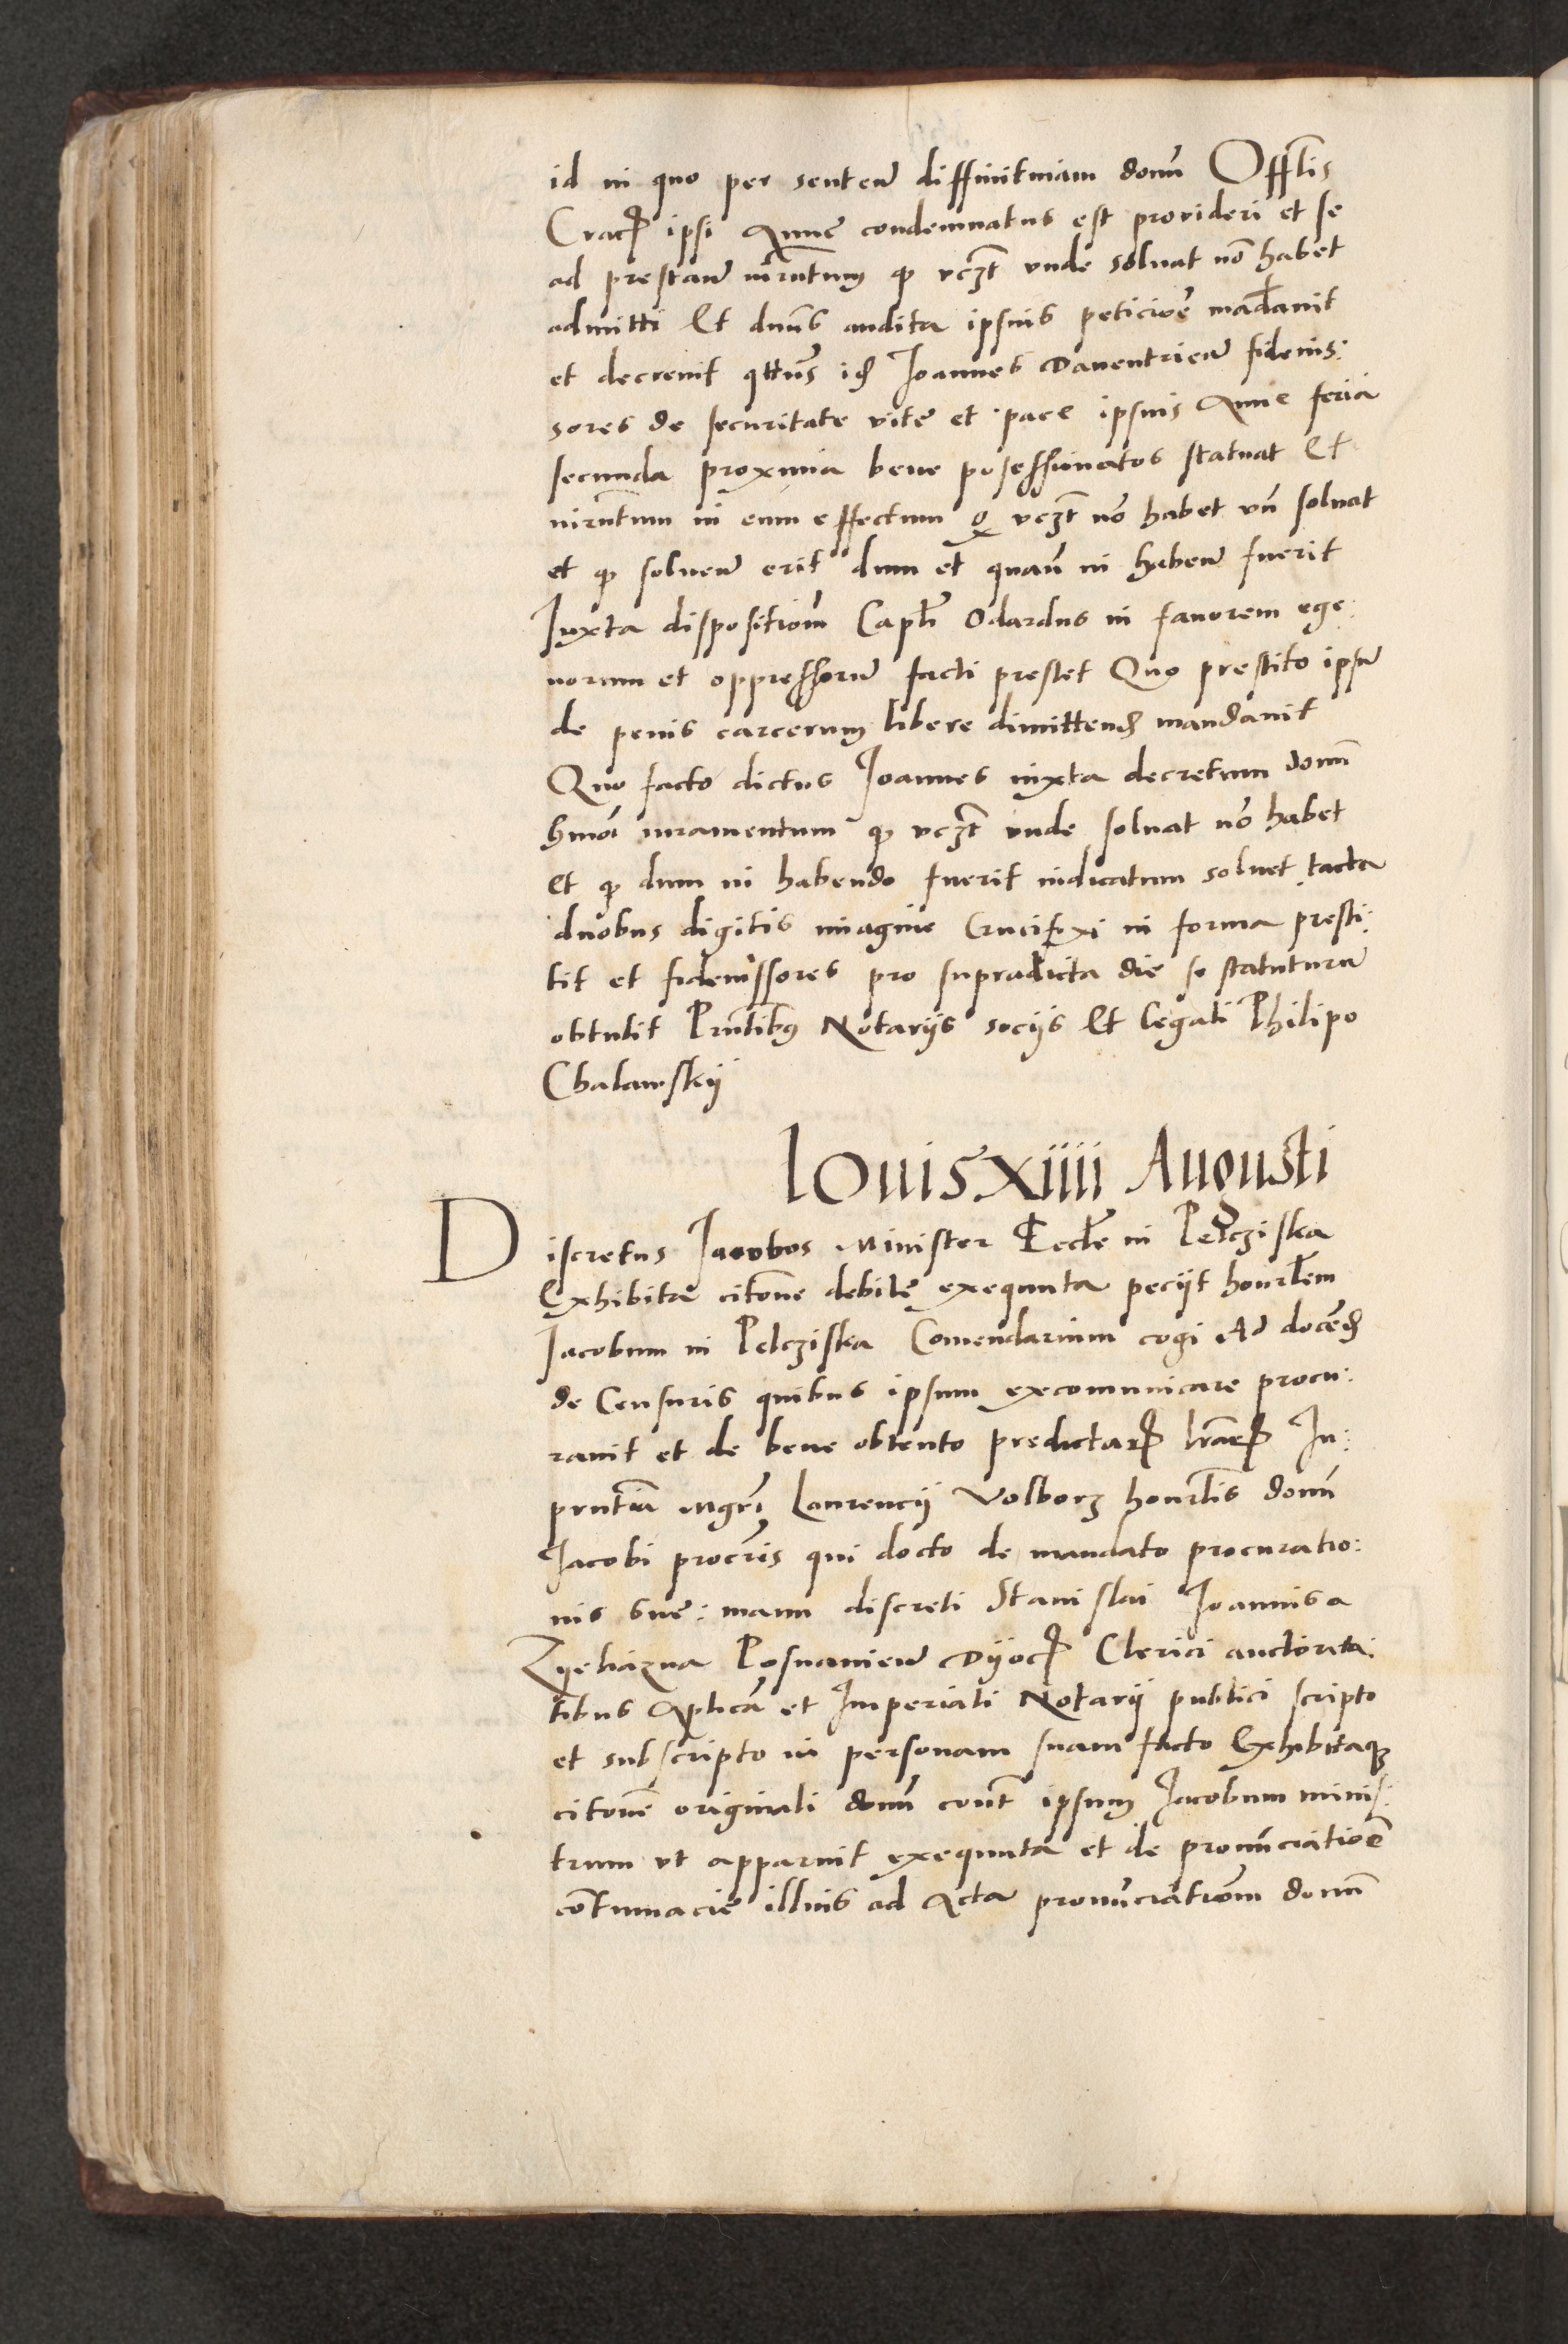 id in quo per sentenc diffinitiuam domi Offłlis
Crac ipsi Anne condemnatus est prouideri et se
ad prestand iurntum q vczt vnde soluat nō habet
admitti Et dnus audita ipsius peticioē mādauit
et decreuit qtus id Joannes Dauentriens fideius:
sores de securitate vite et pace ipsius Anne feria
secunda proxima bene posessionatos statuat Et
iurntum in eum effectum q vczt nō habet vn soluat
et q soluens erit dum et quan in haben fuerit
Juxta dispositiom Caplī Odardus in fauorem ege:
norum et oppressorum facti prestet Quo prestito ipsum
de penis carcerum libere dimittend mandauit
Quo facto dictus Joannes iuxta decretum domi
hmoi iuramentum q vczt vnde soluat nō habet
Et q dum in habendo fuerit iudicatum soluet tacta
duobus digitis imagine Crucifixi in forma presti:
tit et fideiussores pro supradicta die se statuturum
obtulit Pntibus Notariis sociis Et Legati Philipo
Chalawskij
Iouis XIIII Augusti
Discretus Jacobus Minister Eccłe in Pelcziska
Exhibita citone debite exequuta peciit honrłem
Jacobum in Pelcziska Comendarium cogi Ad docēd
de Censuris quibus ipsum excomunicare procu:
rauit et de bene obtento predictar lrar In:
pntia mgri Laurencij Volborz honrłis domi
Jacobi procris qui docto de mandato procuratio:
nis sue: manu discreti Stanislai Joannis a
Posnaniens Dyoc Clerici auctorita:
tibus Aplica et Imperiali Notarij publici scripto
et subscripto in personam suam facto Exhibitaq
citone originali domi cont ipsum Jacobum minis:
trum vt apparuit exequuta et de pronunciatioē
cotumacie illius ad Acta pronunciatiom domi